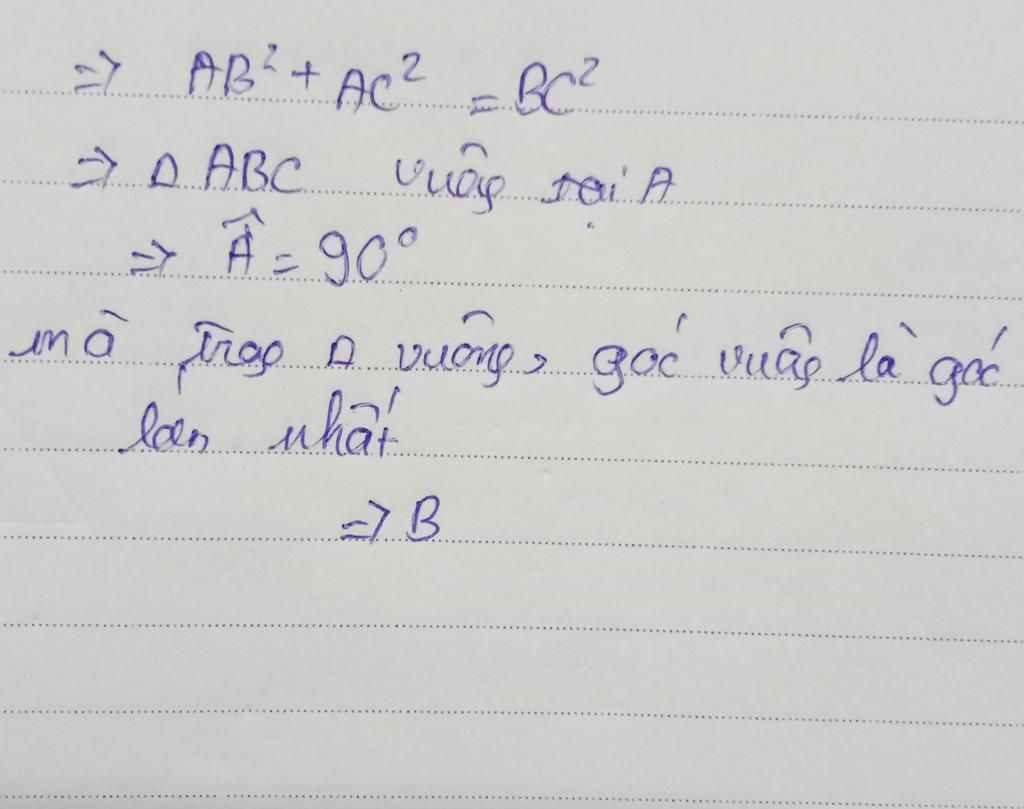 => AB² + AC² = BC²
=> Δ ABC vuông tại A
=> Â = 90°
mà trong Δ vuông, góc vuông là góc
lớn nhất
=> B